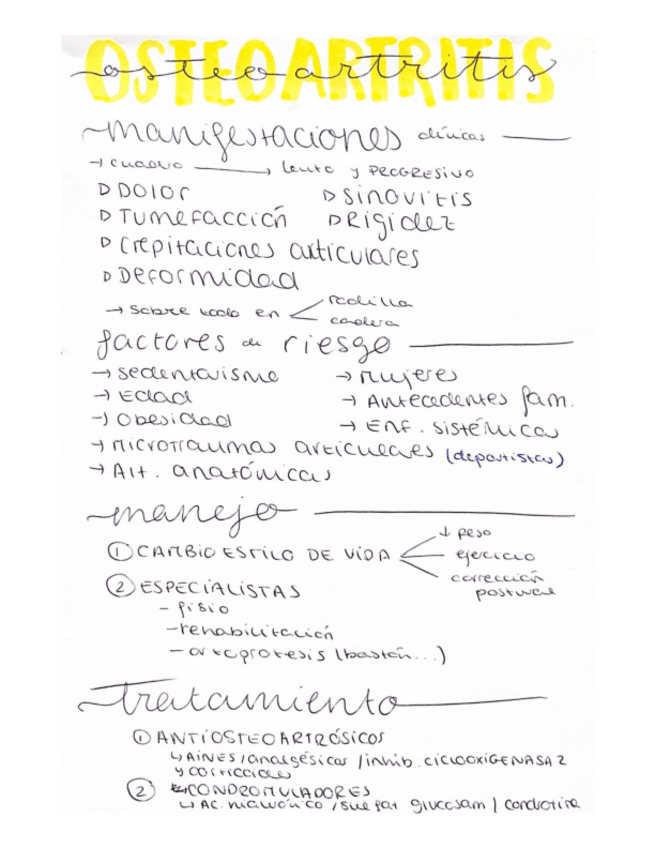 OSTEOARTRITIS
osteoartritis
manifestaciones clínicas
→ cuadro → lento y PROGRESIVO
▷ Dolor ▷ Sinovitis
▷ Tumefacción ▷ Rigidez
▷ Crepitaciones articulares
▷ Deformidad
→ sobre todo en < rodilla
cadera
factores de riesgo
→ sedentarismo → Mujeres
→ Edad → Antecedentes fam.
→ Obesidad → Enf. sistémicas
→ Microtraumas articulares (deportistas)
→ Alt. anatómicas
manejo
① CAMBIO ESTILO DE VIDA < ↓ peso
ejercicio
corrección
postural
② ESPECIALISTAS
- fisio
- rehabilitación
- ortoprotesis (bastón...)
tratamiento
① ANTIOSTEOARTRÓSICOS
↳ AINES / analgésicos / inhib. CICLOOXIGENASA 2
y corticoides
② CONDROMULADORES
↳ AC. /sulfat glucosam / condroitina